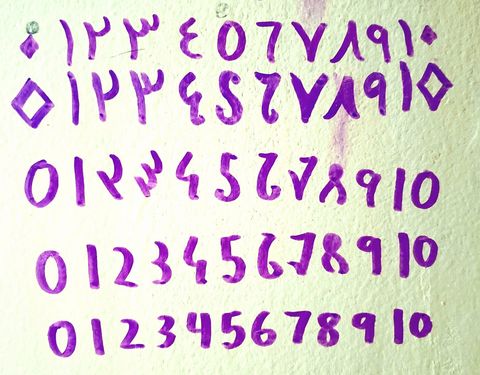 ٠ ١ ٢ ٣ ٤ ٥ ٦ ٧ ٨ ٩ ١٠
٠ ١ ٢ ٣ ٤ 5 6 ٧ ٨ ٩ ١٠
0 1 2 3 4 5 6 7 8 9 10
0 1 2 3 4 5 6 7 8 9 10
0 1 2 3 4 5 6 7 8 9 10